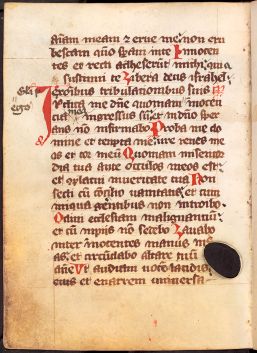 animam meam & erue me. non eru
bescam quoniam speraui in te Innocen
tes et recti adheserunt michi quia
sustinui te Libera deus israhel
ex omnibus tribulationibus suis
Iudica me domine quoniam ego in innocen
cia mea ingressus sum et in domino sper
ans non infirmabor Proba me do
mine et tempta me ure renes me
os et cor meum Quoniam misericor
dia tua ante occulos meos est
et complacui in ueritate tua Non
sedi cum consilio uanitatis et cum
iniqua gerentibus non introibo
Odiui ecclesiam malignantium
et cum impiis non sedebo Lauabo
inter innocentes manus me
as et circumdabo altare tuum
domine Ut audiam uocem laudis
tue et enarrem uniuersa